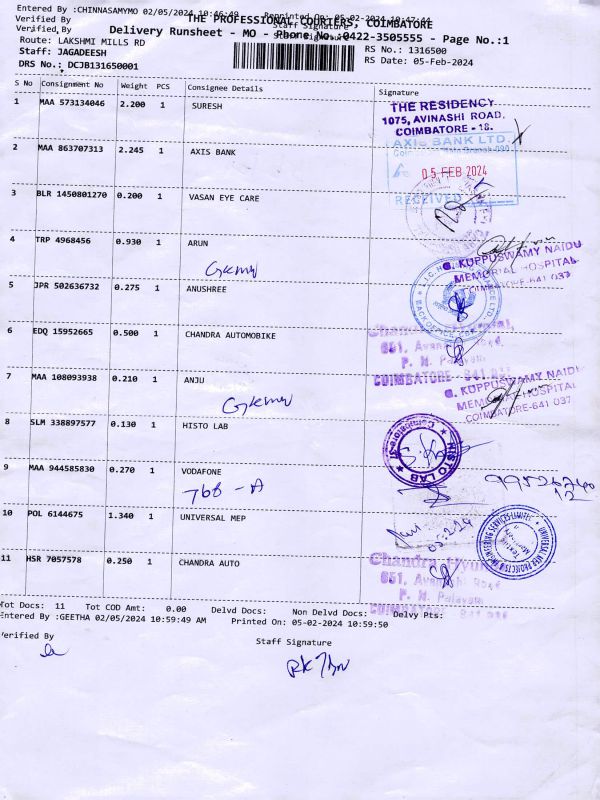 Entered By :CHINNASAMYMO 02/05/2024 10:46:49 Reprinted On: 05-02-2024 10:47:41
Verified By Staff Signature
THE PROFESSIONAL COURIERS, COIMBATORE
Verified By Staff Signature
Delivery Runsheet - MO - Phone No.:0422-3505555 - Page No.:1
Route: LAKSHMI MILLS RD
RS No.: 1316500
Staff: JAGADEESH
RS Date: 05-Feb-2024
DRS No.: DCJB131650001
S No Consignment No Weight PCS Consignee Details Signature
1 MAA 573134046 2.200 1 SURESH
THE RESIDENCY
1075, AVINASHI ROAD,
COIMBATORE - 18.
2 MAA 863707313 2.245 1 AXIS BANK
AXIS BANK LTD.
05 FEB 2024
RECEIVED
3 BLR 1450801270 0.200 1 VASAN EYE CARE
4 TRP 4968456 0.930 1 ARUN
G. KUPPUSWAMY NAIDU
MEMORIAL HOSPITAL
COIMBATORE-641 037
5 JPR 502636732 0.275 1 ANUSHREE
BACK OFFICE
6 EDQ 15952665 0.500 1 CHANDRA AUTOMOBIKE
Chandra Hyundai,
651, Avanashi Road,
P. N. Palayam,
COIMBATORE - 641 037
7 MAA 108093938 0.210 1 ANJU
G. KUPPUSWAMY NAIDU
MEMORIAL HOSPITAL
COIMBATORE-641 037
8 SLM 338897577 0.130 1 HISTO LAB
HISTO LAB
Coimbatore-37
9 MAA 944585830 0.270 1 VODAFONE
768 - A
10 POL 6144675 1.340 1 UNIVERSAL MEP
UNIVERSAL MEP PROJECTS & ENGINEERING SERVICES LIMITED
11 HSR 7057578 0.250 1 CHANDRA AUTO
Chandra Hyundai
651, Avanashi Road
P. N. Palayam
COIMBATORE - 641 037
Tot Docs: 11 Tot COD Amt: 0.00 Delvd Docs: Non Delvd Docs: Delvy Pts:
Entered By :GEETHA 02/05/2024 10:59:49 AM Printed On: 05-02-2024 10:59:50
Verified By
Staff Signature